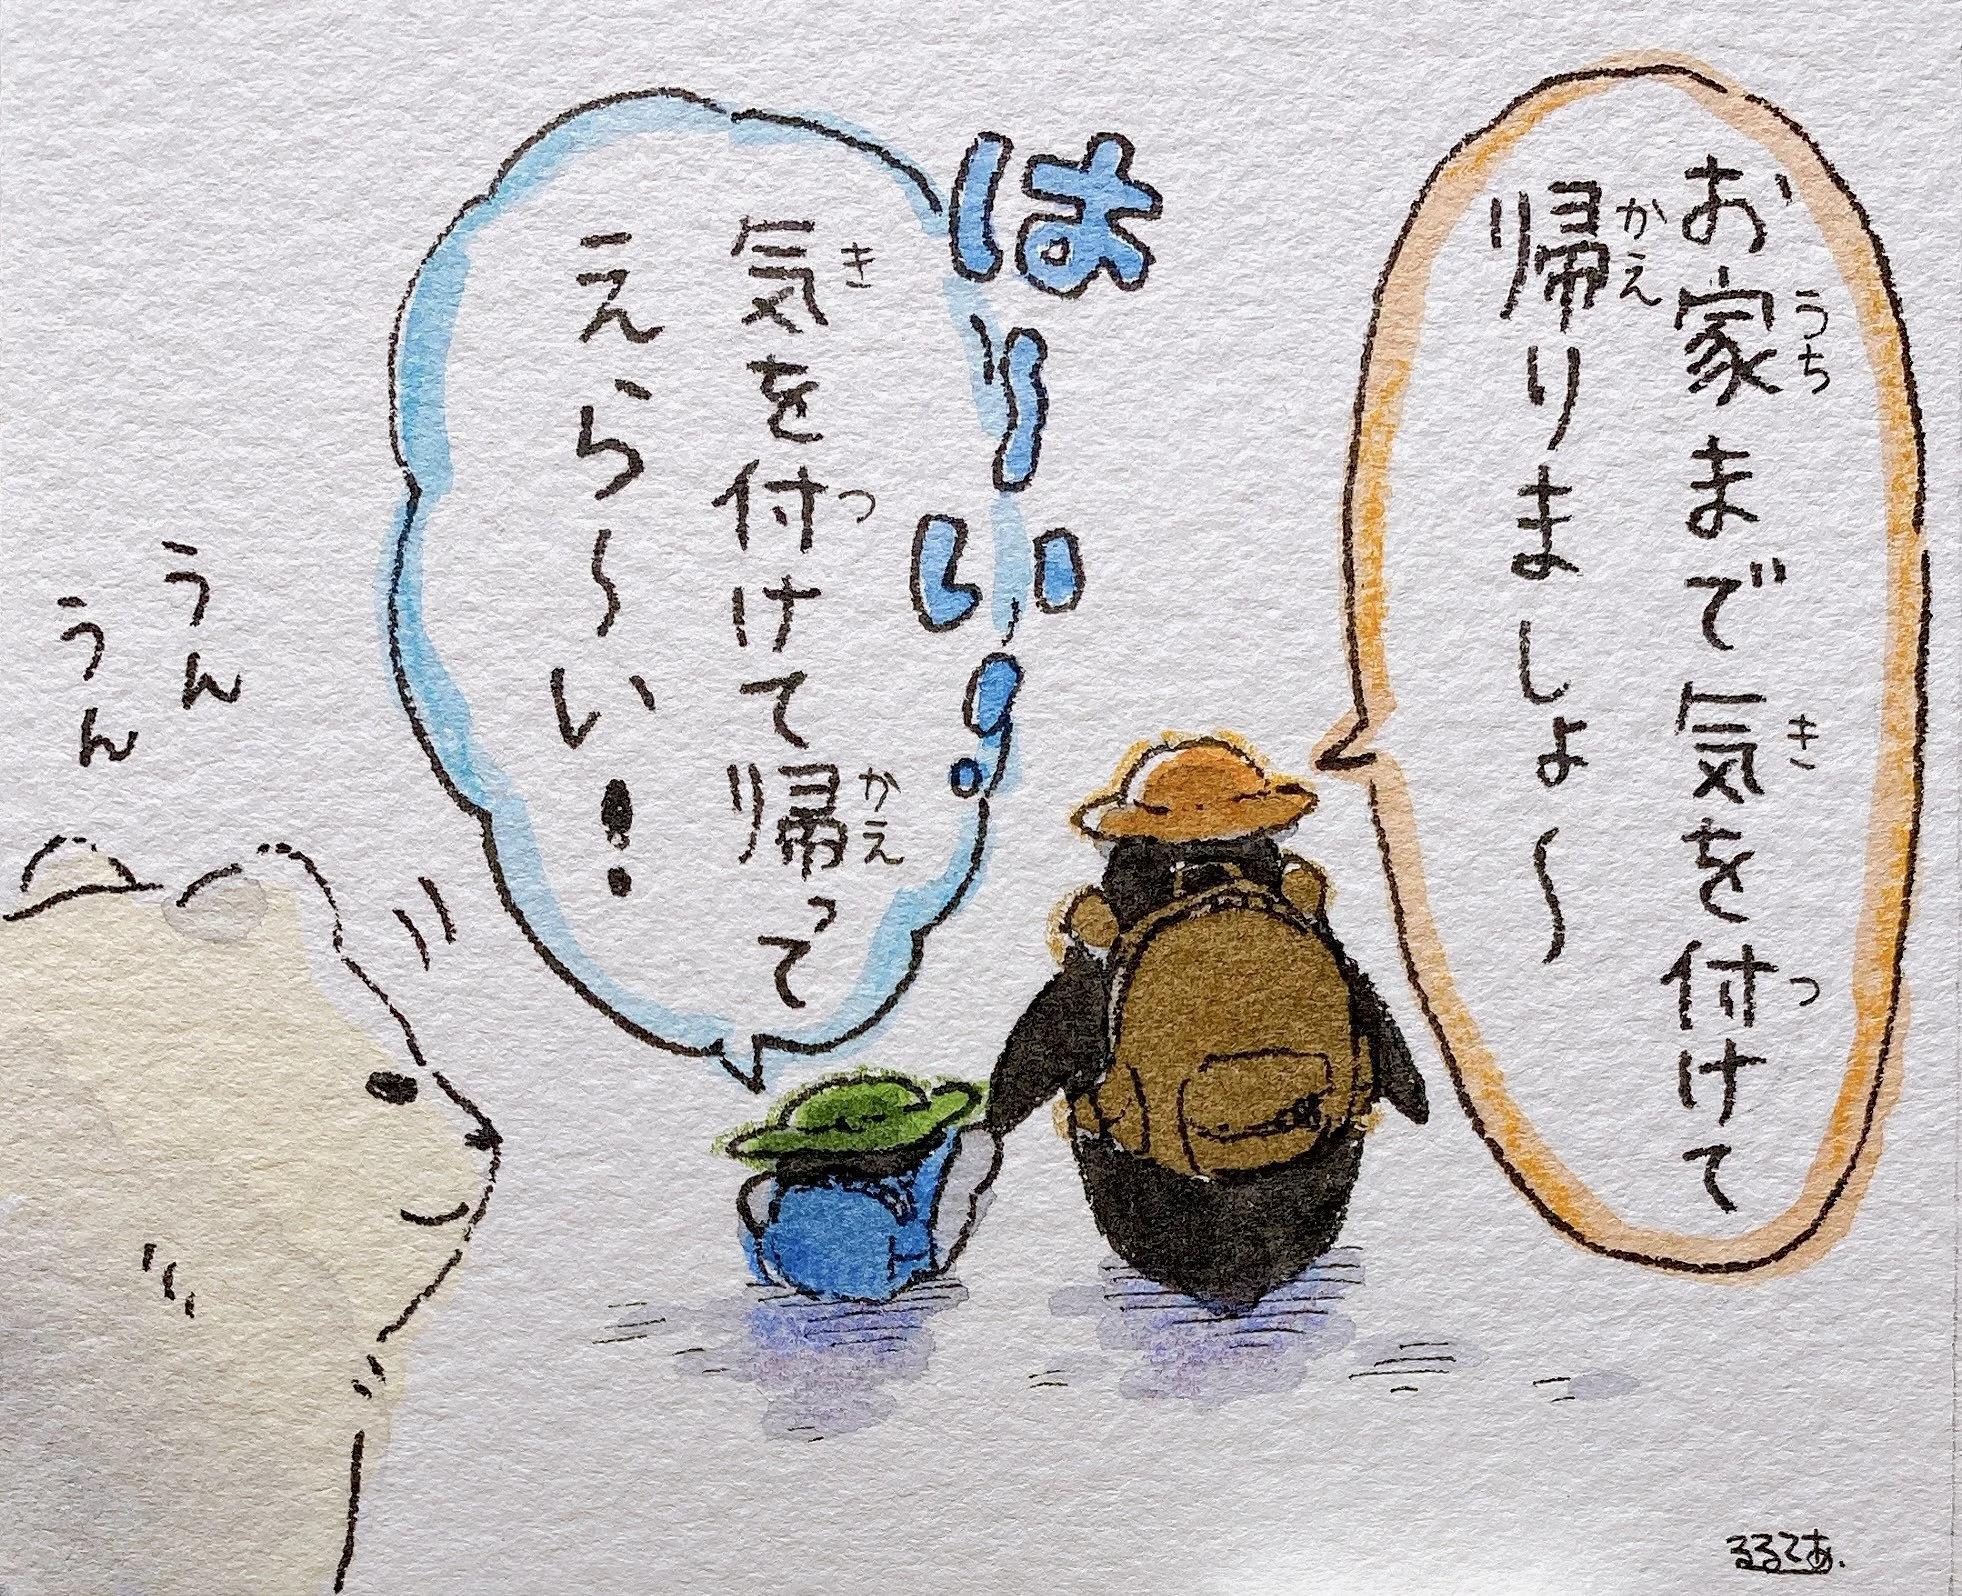 お家まで気を付けて
うち
き
つ
帰りましょ〜
かえ
は〜い!
気を付けて帰って
き
つ
かえ
えら〜い!
うん
うん
るるてあ.